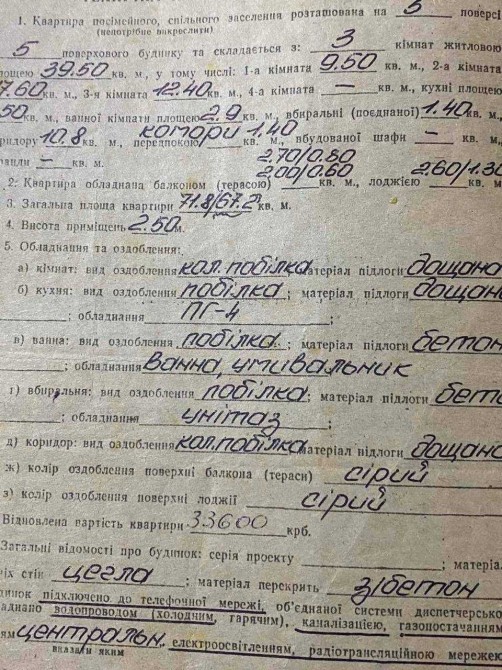 1. Квартира посімейного, спільного заселення розташована на 5 поверсі
(непотрібне викреслити)
5 поверхового будинку та складається з: 3 кімнат житловою
площею 39.50 кв. м., у тому числі: 1-а кімната 9.50 кв. м., 2-а кімната
7.60 кв. м., 3-я кімната 12.40 кв. м., 4-а кімната — кв. м., кухні площею
50 кв. м., ванної кімнати площею 2.9 кв. м., вбиральні (поєднаної) 1.40 кв. м.,
ридору 10.8 кв. м., передпокою комори 1.40 кв. м., вбудованої шафи — кв. м.,
— кв. м.
2.70/0.80
2. Квартира обладнана балконом (терасою) 2.00/0.60 кв. м., лоджією 2.60/1.30 кв. м.
3. Загальна площа квартири 71.8/67.2 кв. м.
4. Висота приміщень 2.50 м.
5. Обладнання та оздоблення:
а) кімнат: вид оздоблення кол. побілка матеріал підлоги дощана
б) кухня: вид оздоблення побілка; матеріал підлоги дощан
; обладнання ПГ-4;
в) ванна: вид оздоблення побілка; матеріал підлоги бетон
; обладнання Ванна, умивальник
г) вбиральня: вид оздоблення побілка; матеріал підлоги бето
; обладнання унітаз;
д) коридор: вид оздоблення кол. побілка матеріал підлоги дощана
ж) колір оздоблення поверхні балкона (тераси) сірий
з) колір оздоблення поверхні лоджії сірий
Відновлена вартість квартири 33600 крб.
Загальні відомості про будинок: серія проекту ; матеріа
ніх стін цегла; матеріал перекрить з/бетон
динок підключено до телефонної мережі, об'єднаної системи диспетчерсько
аднано водопроводом (холодним, гарячим), каналізацією, газопостачанням
ням централь н., електроосвітленням, радіотрансляційною мережею
вказати яким